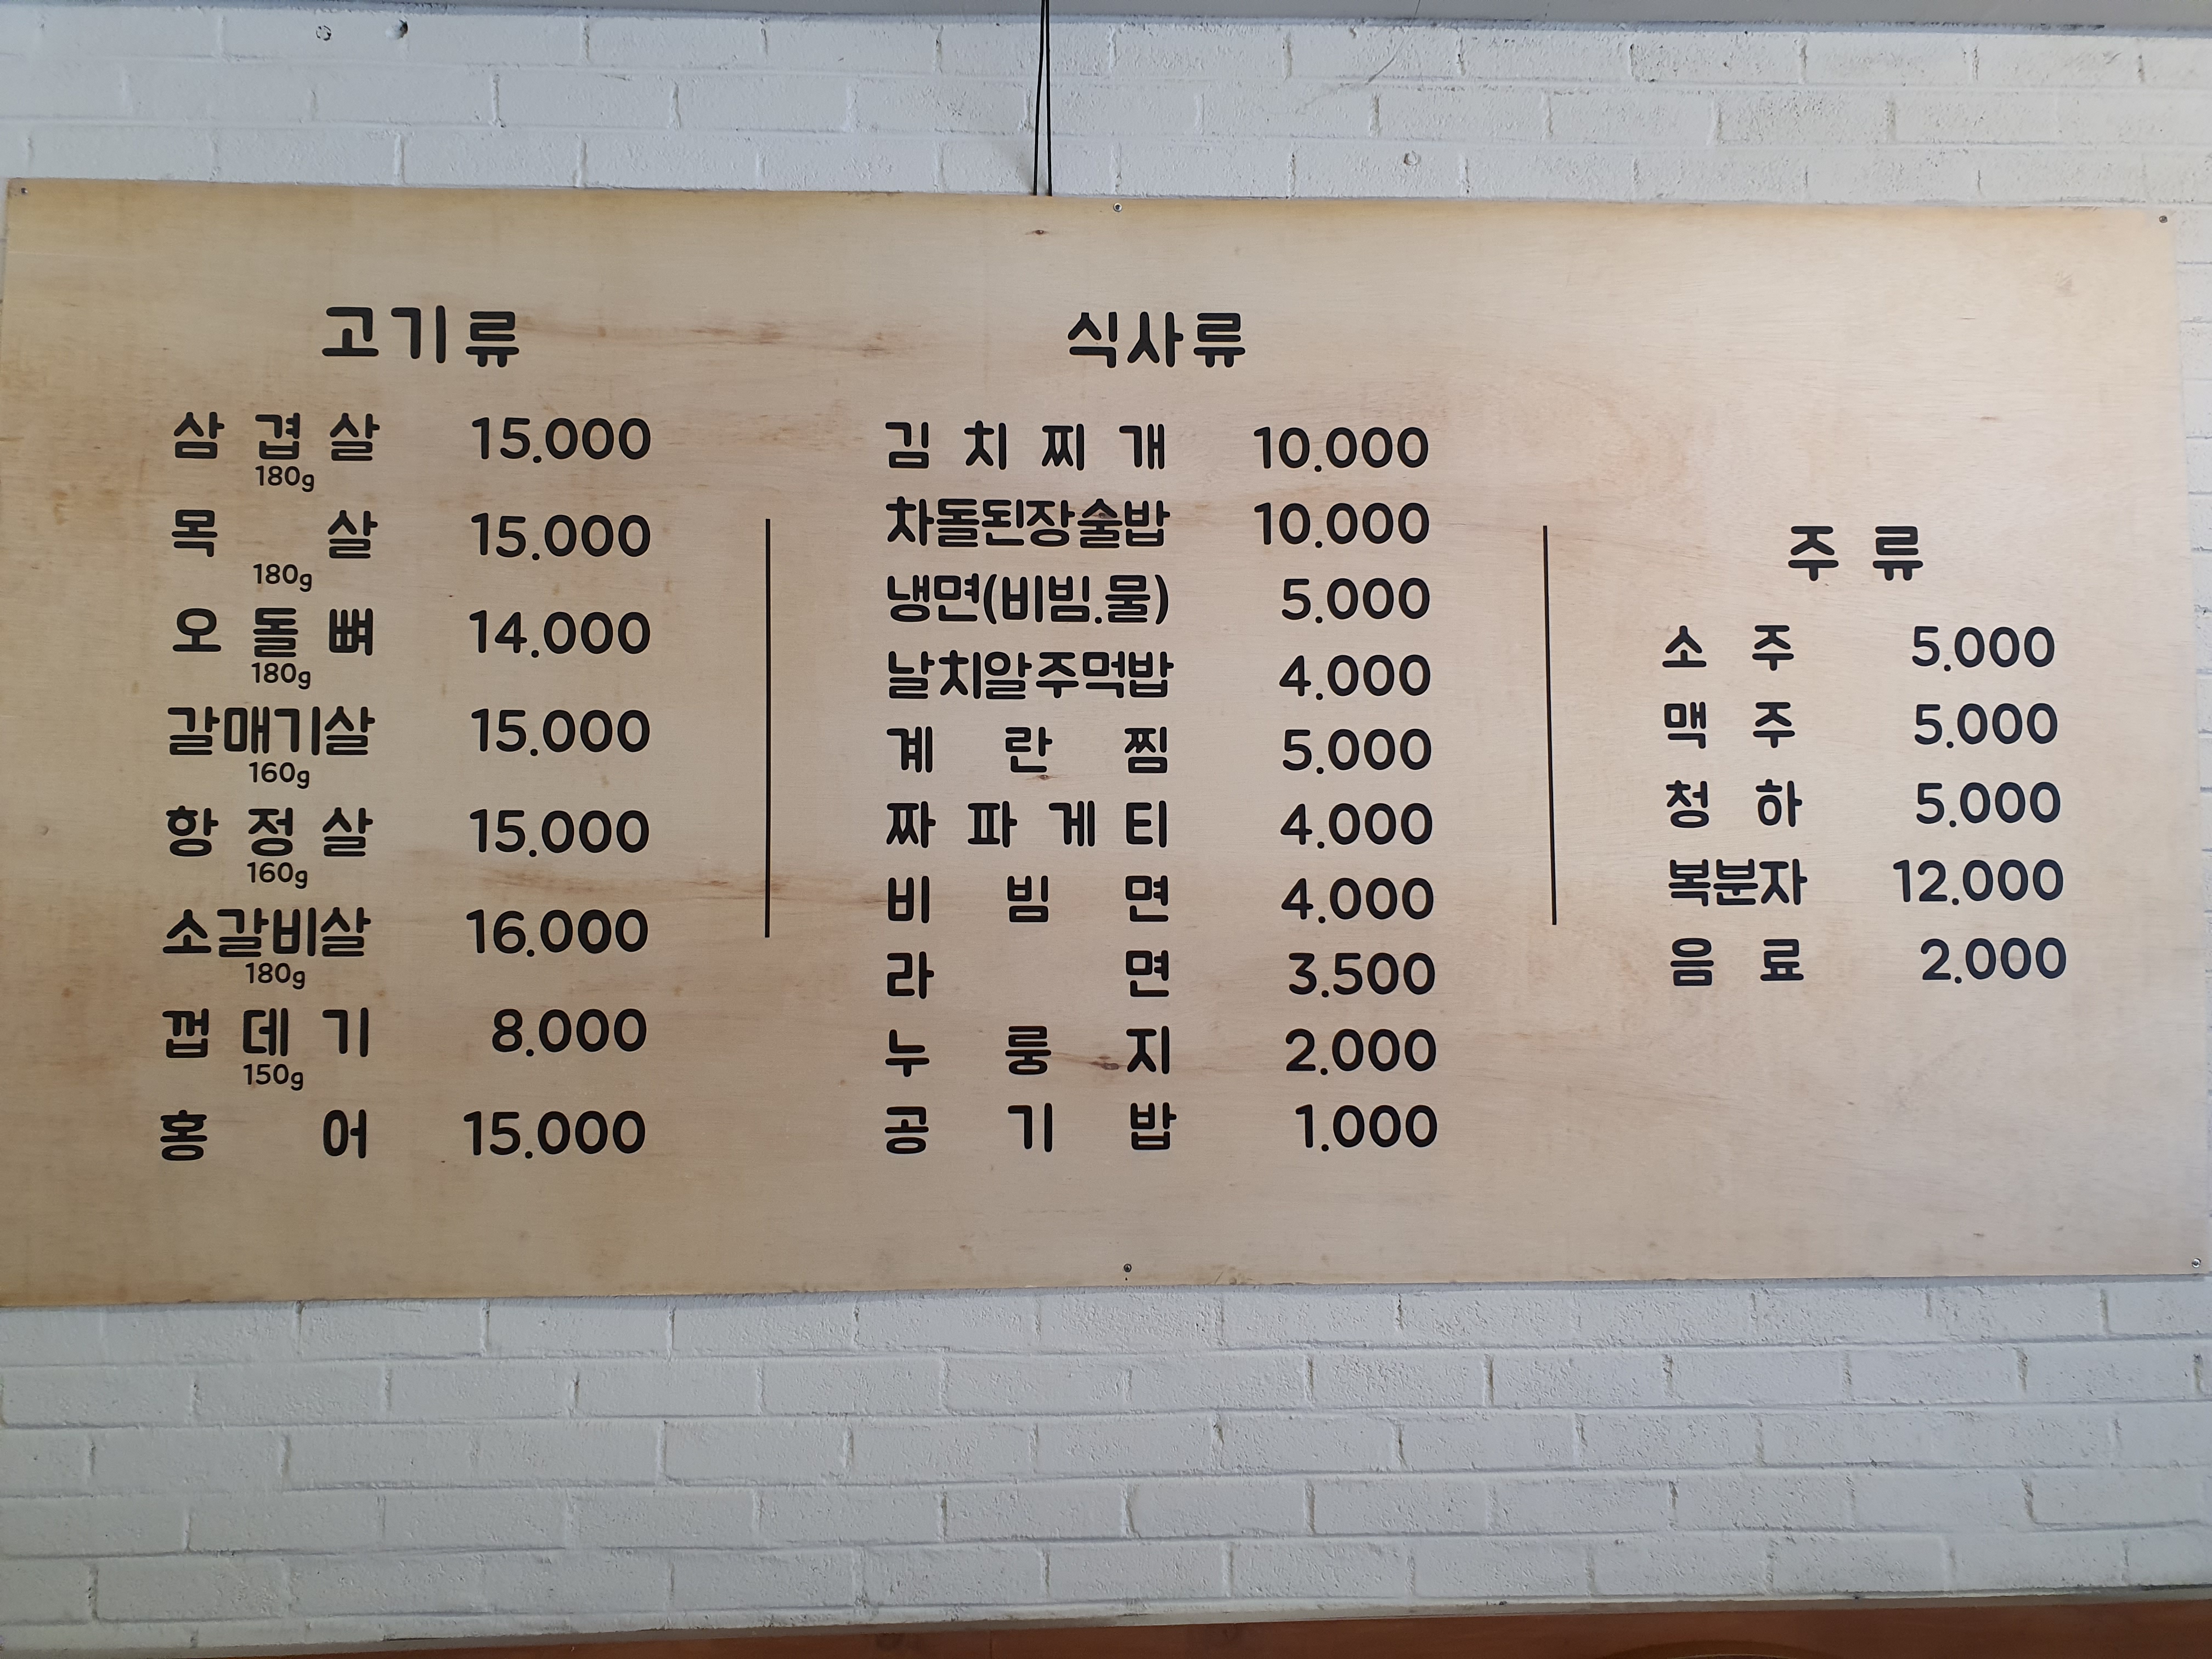 고기류
삼겹살 15.000
180g
목살 15.000
180g
오돌뼈 14.000
180g
갈매기살 15.000
160g
항정살 15.000
160g
소갈비살 16.000
180g
껍데기 8.000
150g
홍어 15.000
식사류
김치찌개 10.000
차돌된장술밥 10.000
냉면(비빔.물) 5.000
날치알주먹밥 4.000
계란찜 5.000
짜파게티 4.000
비빔면 4.000
라면 3.500
누룽지 2.000
공기밥 1.000
주류
소주 5.000
맥주 5.000
청하 5.000
복분자 12.000
음료 2.000